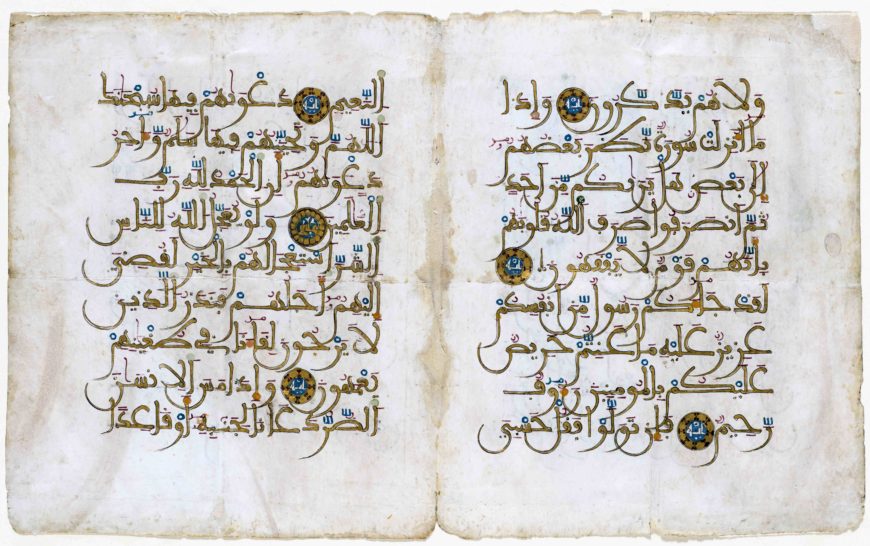 ولا هم يذكرون اية وإذا
ما أنزلت سورة نظر بعضهم
إلى بعض هل يريكم من أحد
ثم انصرفوا صرف الله قلوبهم
بأنهم قوم لا يفقهون اية
لقد جاءكم رسول من أنفسكم
عزيز عليه ما عنتم حريص
عليكم بالمومنين رءوف
رحيم اية فإن تولوا فقل حسبي
النعيم اية دعويهم فيها سبحنك
اللهم وتحيتهم فيها سلم وءاخر
دعويهم أن الحمد لله رب
العلمين ولو يعجل الله للناس
الشر استعجالهم بالخير لقضي
إليهم أجلهم فنذر الذين
لا يرجون لقاءنا في طغينهم
يعمهون اية وإذا مس الإنسن
الضر دعانا لجنبه أو قاعدا